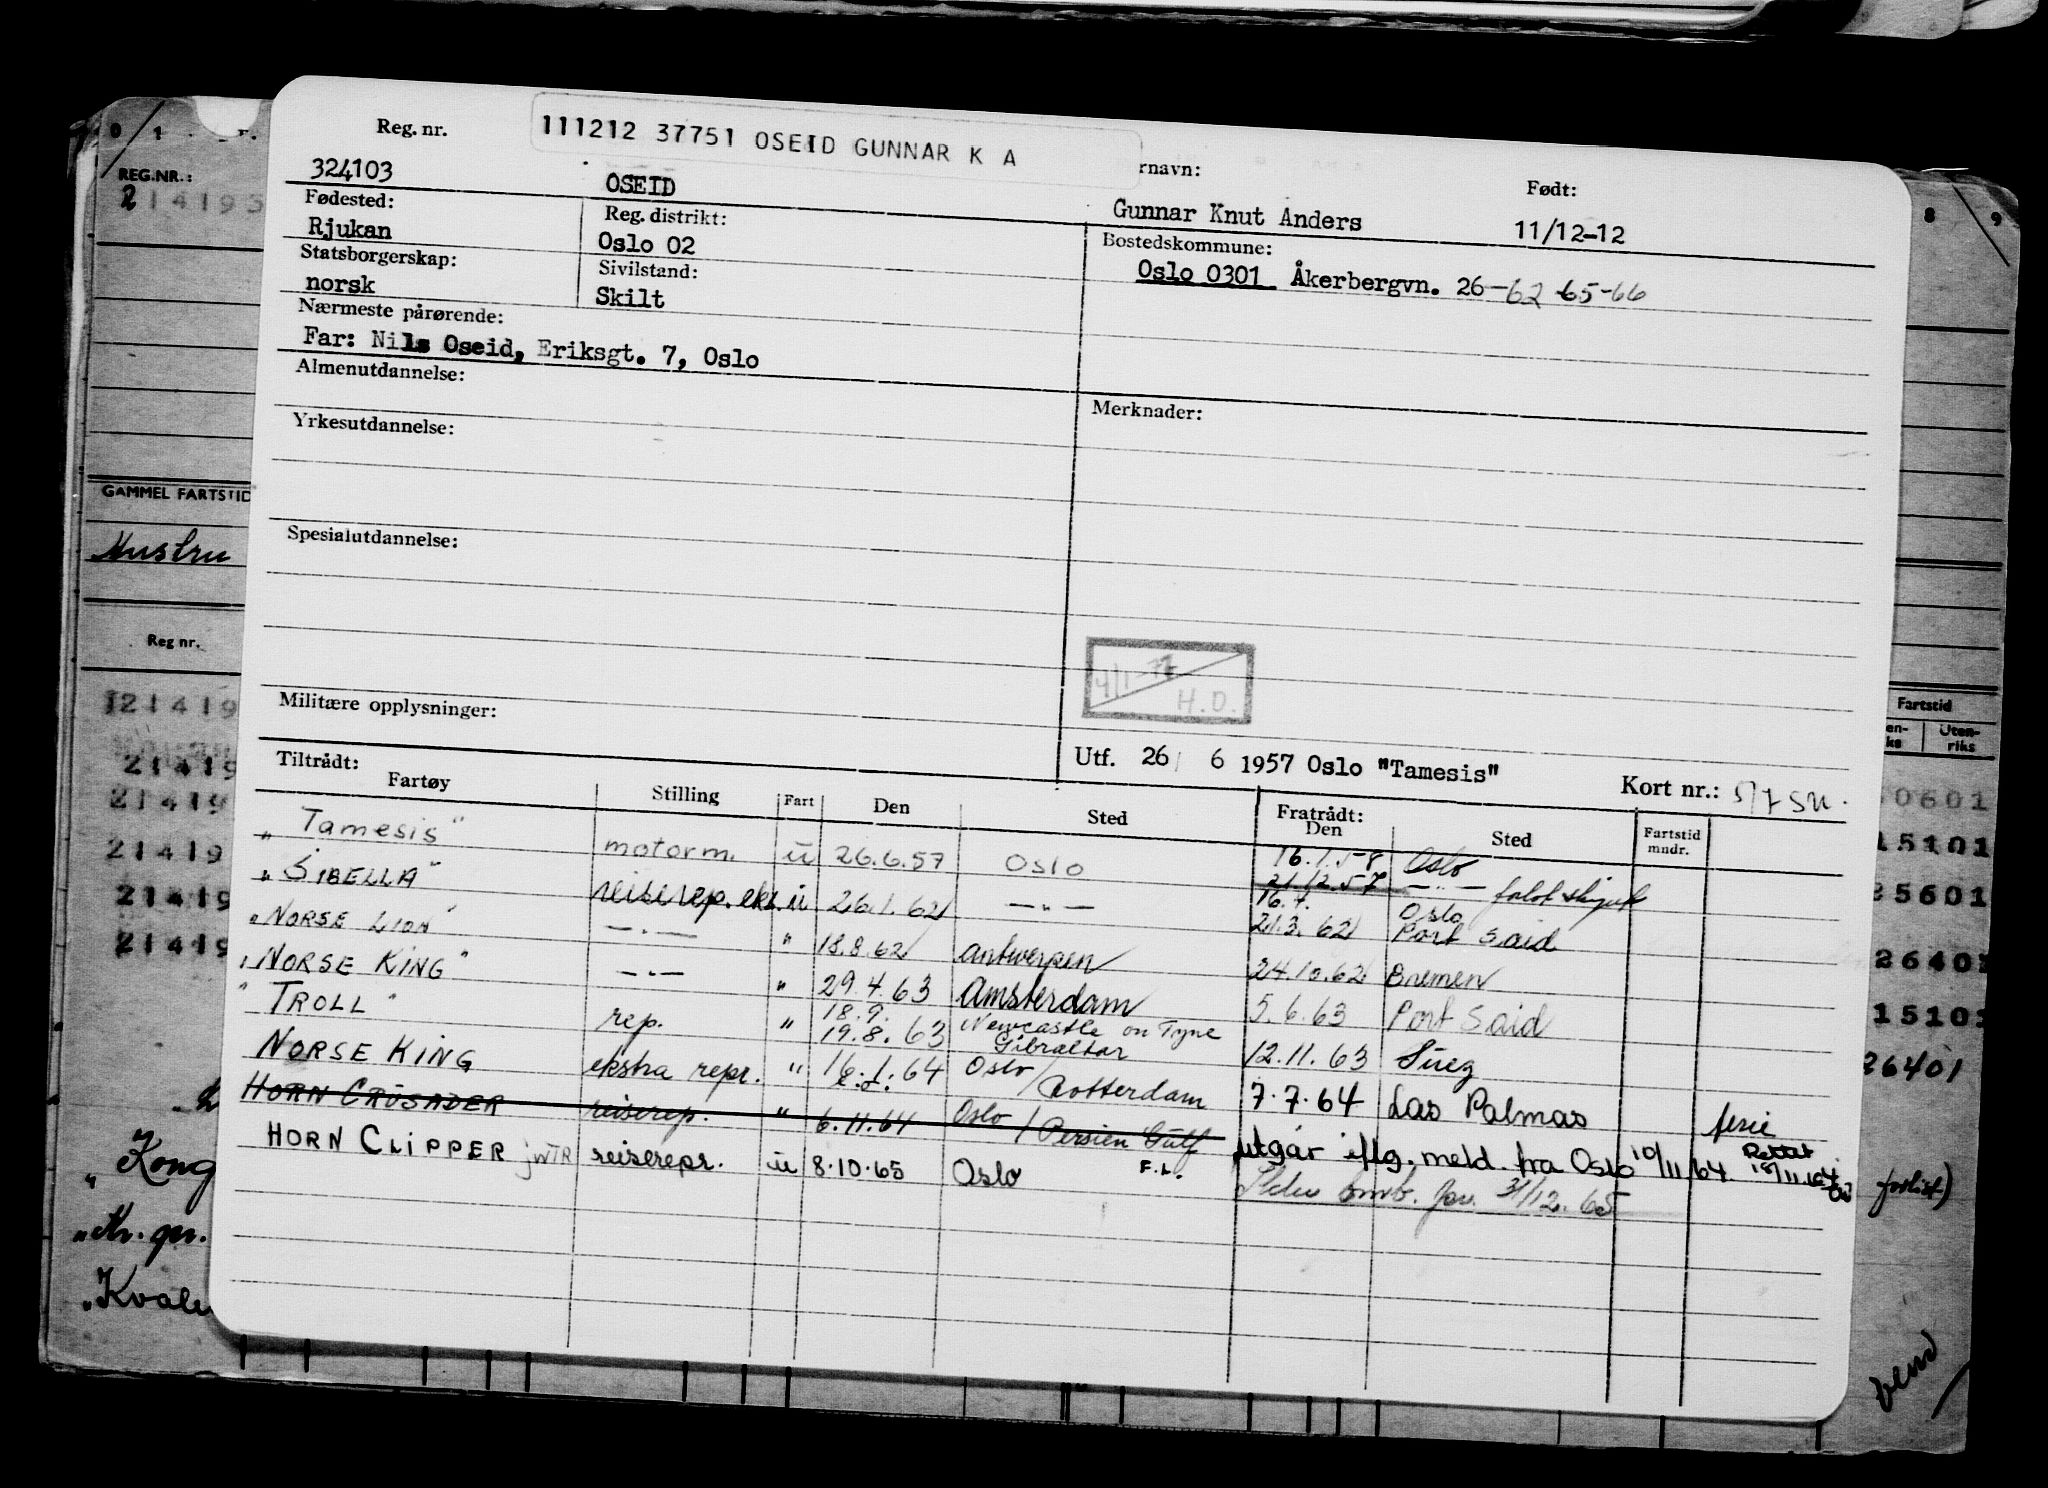 111212 37751 OSEID GUNNAR K A
Reg. nr. rnavn: Født:
324103 OSEID Gunnar Knut Anders 11/12-12
Fødested: Reg. distrikt: Bostedskommune:
Rjukan Oslo 02 Oslo 0301 Åkerbergvn. 26-62 65-66
Statsborgerskap: Sivilstand:
norsk Skilt
Nærmeste pårørende:
Far: Nils Oseid, Eriksgt. 7, Oslo
Almenutdannelse: Merknader:
Yrkesutdannelse:
Spesialutdannelse:
H.O.
Militære opplysninger:
Utf. 26/ 6 1957 Oslo "Tamesis" Kort nr.:
Tiltrådt: Fratrådt:
Fartøy Stilling Fart Den Sted Den Sted Fartstid mndr.
"Tamesis" motorm. ü 26.6.57 Oslo 16.1.58 Oslo
21.12.57 — " —
"SIBELLA" reiserep. eks. ü 26.1.62 — " — 16.4. Oslo
21.3.62 Port Said
"NORSE LION" — " — " 18.8.62 Antwerpen 24.10.62 Bremen
"NORSE KING" — " — " 29.4.63 Amsterdam 5.6.63 Port Said
"TROLL" rep. " 18.9. Newcastle on Tyne
19.8.63 Gibraltar 12.11.63 Suez
NORSE KING ekstra repr. " 16.1.64 Oslo / Rotterdam 7.7.64 Las Palmas ferie
HORN CRUSADER reiserep. " 6.11.64 Oslo / Persien Gulf utgår iflg. meld. fra Oslo 10/11 64. Rettet 18/11.64
HORN CLIPPER jWTR reiserepr. ü 8.10.65 Oslo F.L. 31/12.65
REG.NR.:
214195
GAMMEL FARTSTID
Mustru
Reg nr.
21419
21419
21419
21419
21419
21419
"Kong
"Kvale
0 1
8 9
Fartstid
en-ke Uten-riks
0601
15101
25601
26401
15101
26401
forlist)
vend